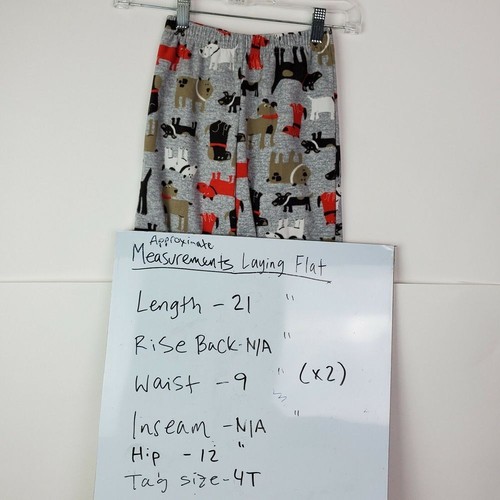 Approximate
Measurements Laying Flat
Length - 21 "
Rise Back - N/A "
Waist - 9 " (x2)
Inseam - N/A "
Hip - 12 "
Tag size - 4T